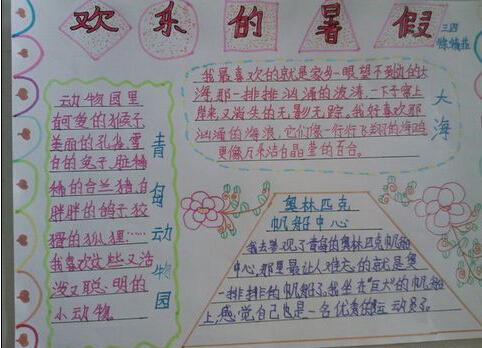 欢乐的暑假
三四
动物园里
有可爱的猴子
美丽的孔雀,雪
白的兔子,脏稀
稀的台兰猪,白
胖胖的鸽子,狡
猾的狐狸……
我喜欢这些又活
泼又聪明的
小动物。
青岛动物园
我最喜欢的就是家乡一眼望不到边的大
海,那一排排汹涌的波涛,一下子窜上
岸来,又消失的无影无踪。我好喜欢那
汹涌的海浪,它们像一行行飞翔的海鸥
更像万朵洁白晶莹的百合。
大海
奥林匹克
帆船中心
我去参观了青岛的奥林匹克帆船
中心,那里最让人难忘的就是奥
一排排的帆船了。我坐在"巨大"的帆船
上,感觉自己也是一名优秀的运动员了。